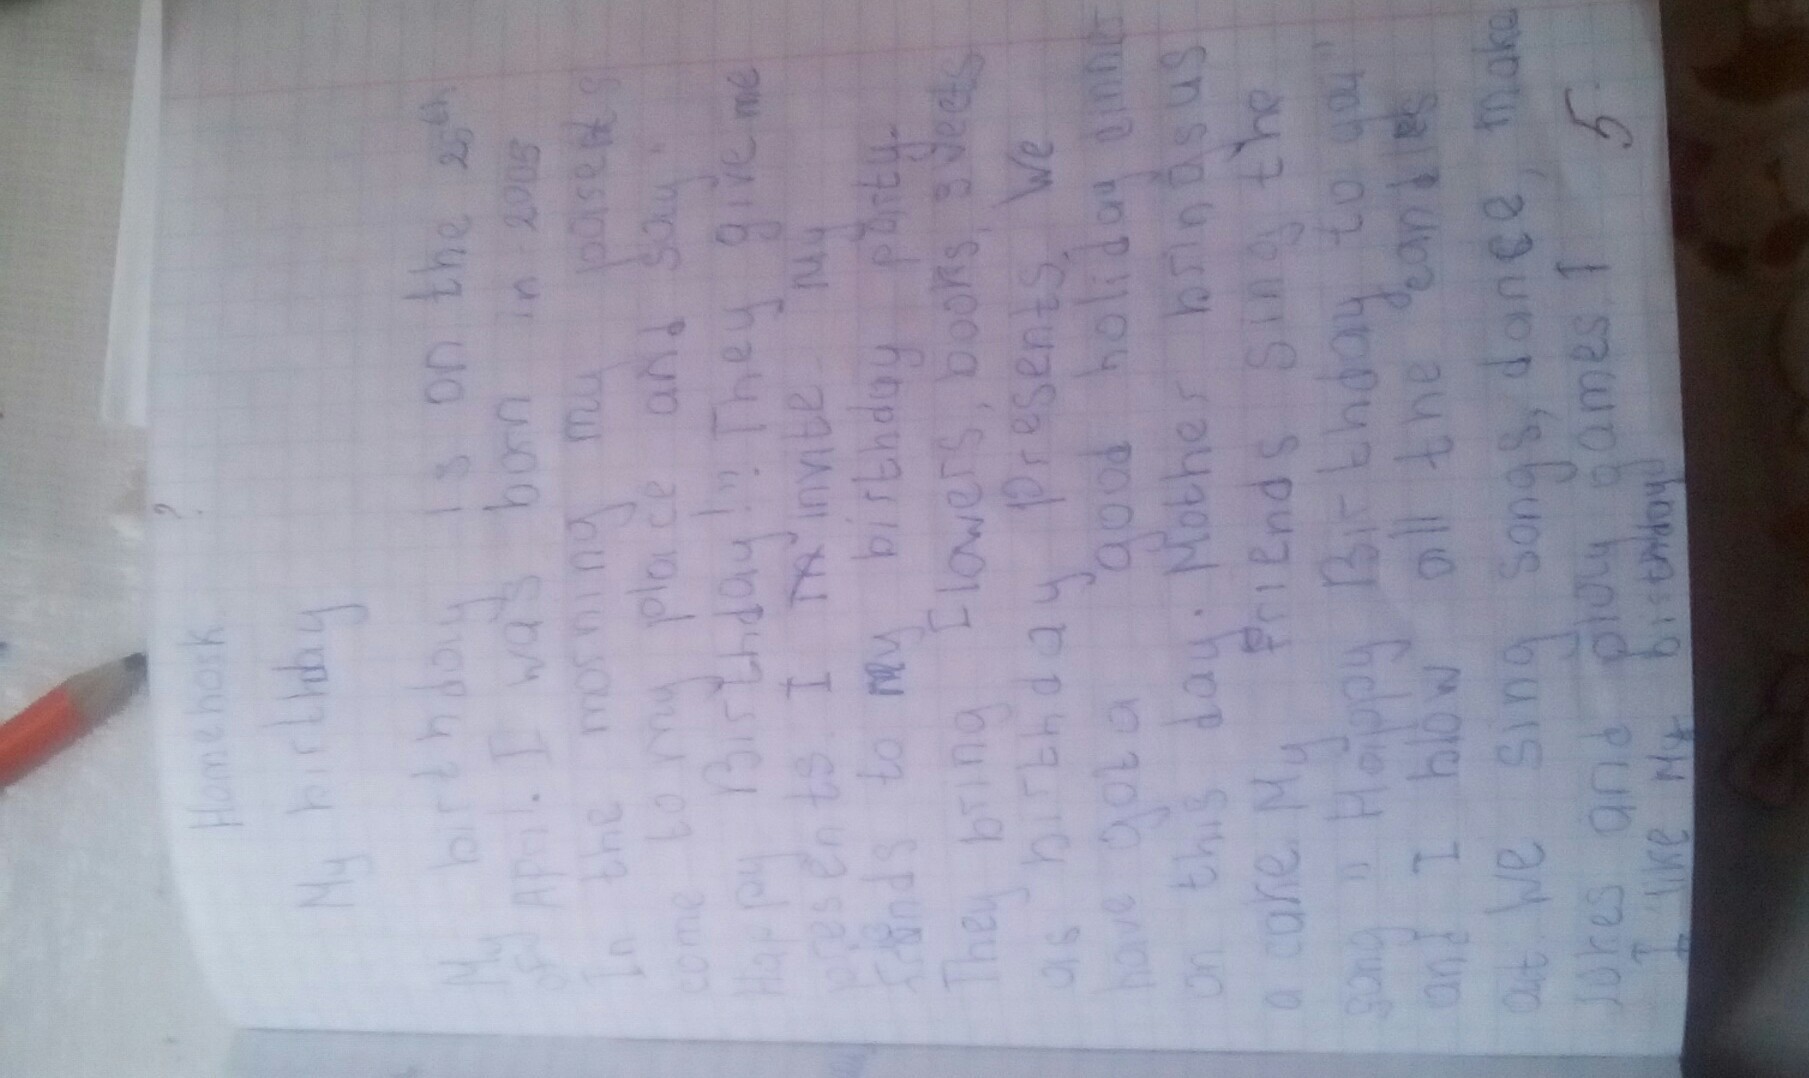 Homehork
My birthday
My birthday is on the 25th
of April. I was born in 2005
In the morning my parents
come to my place and say "
Happy Birthday!". They give me
presents. I invite my
friends to my birthday party.
They bring flowers, books, sveets
as birthday presents. We
have got a good holiday dinner
on this day. Mother brings us
a cake. My friends sing the
song " Happy Birthday to you"
and I blow all the candles
out. We sing songs, dance, make
jokes and play games. I
I like My birthday
5